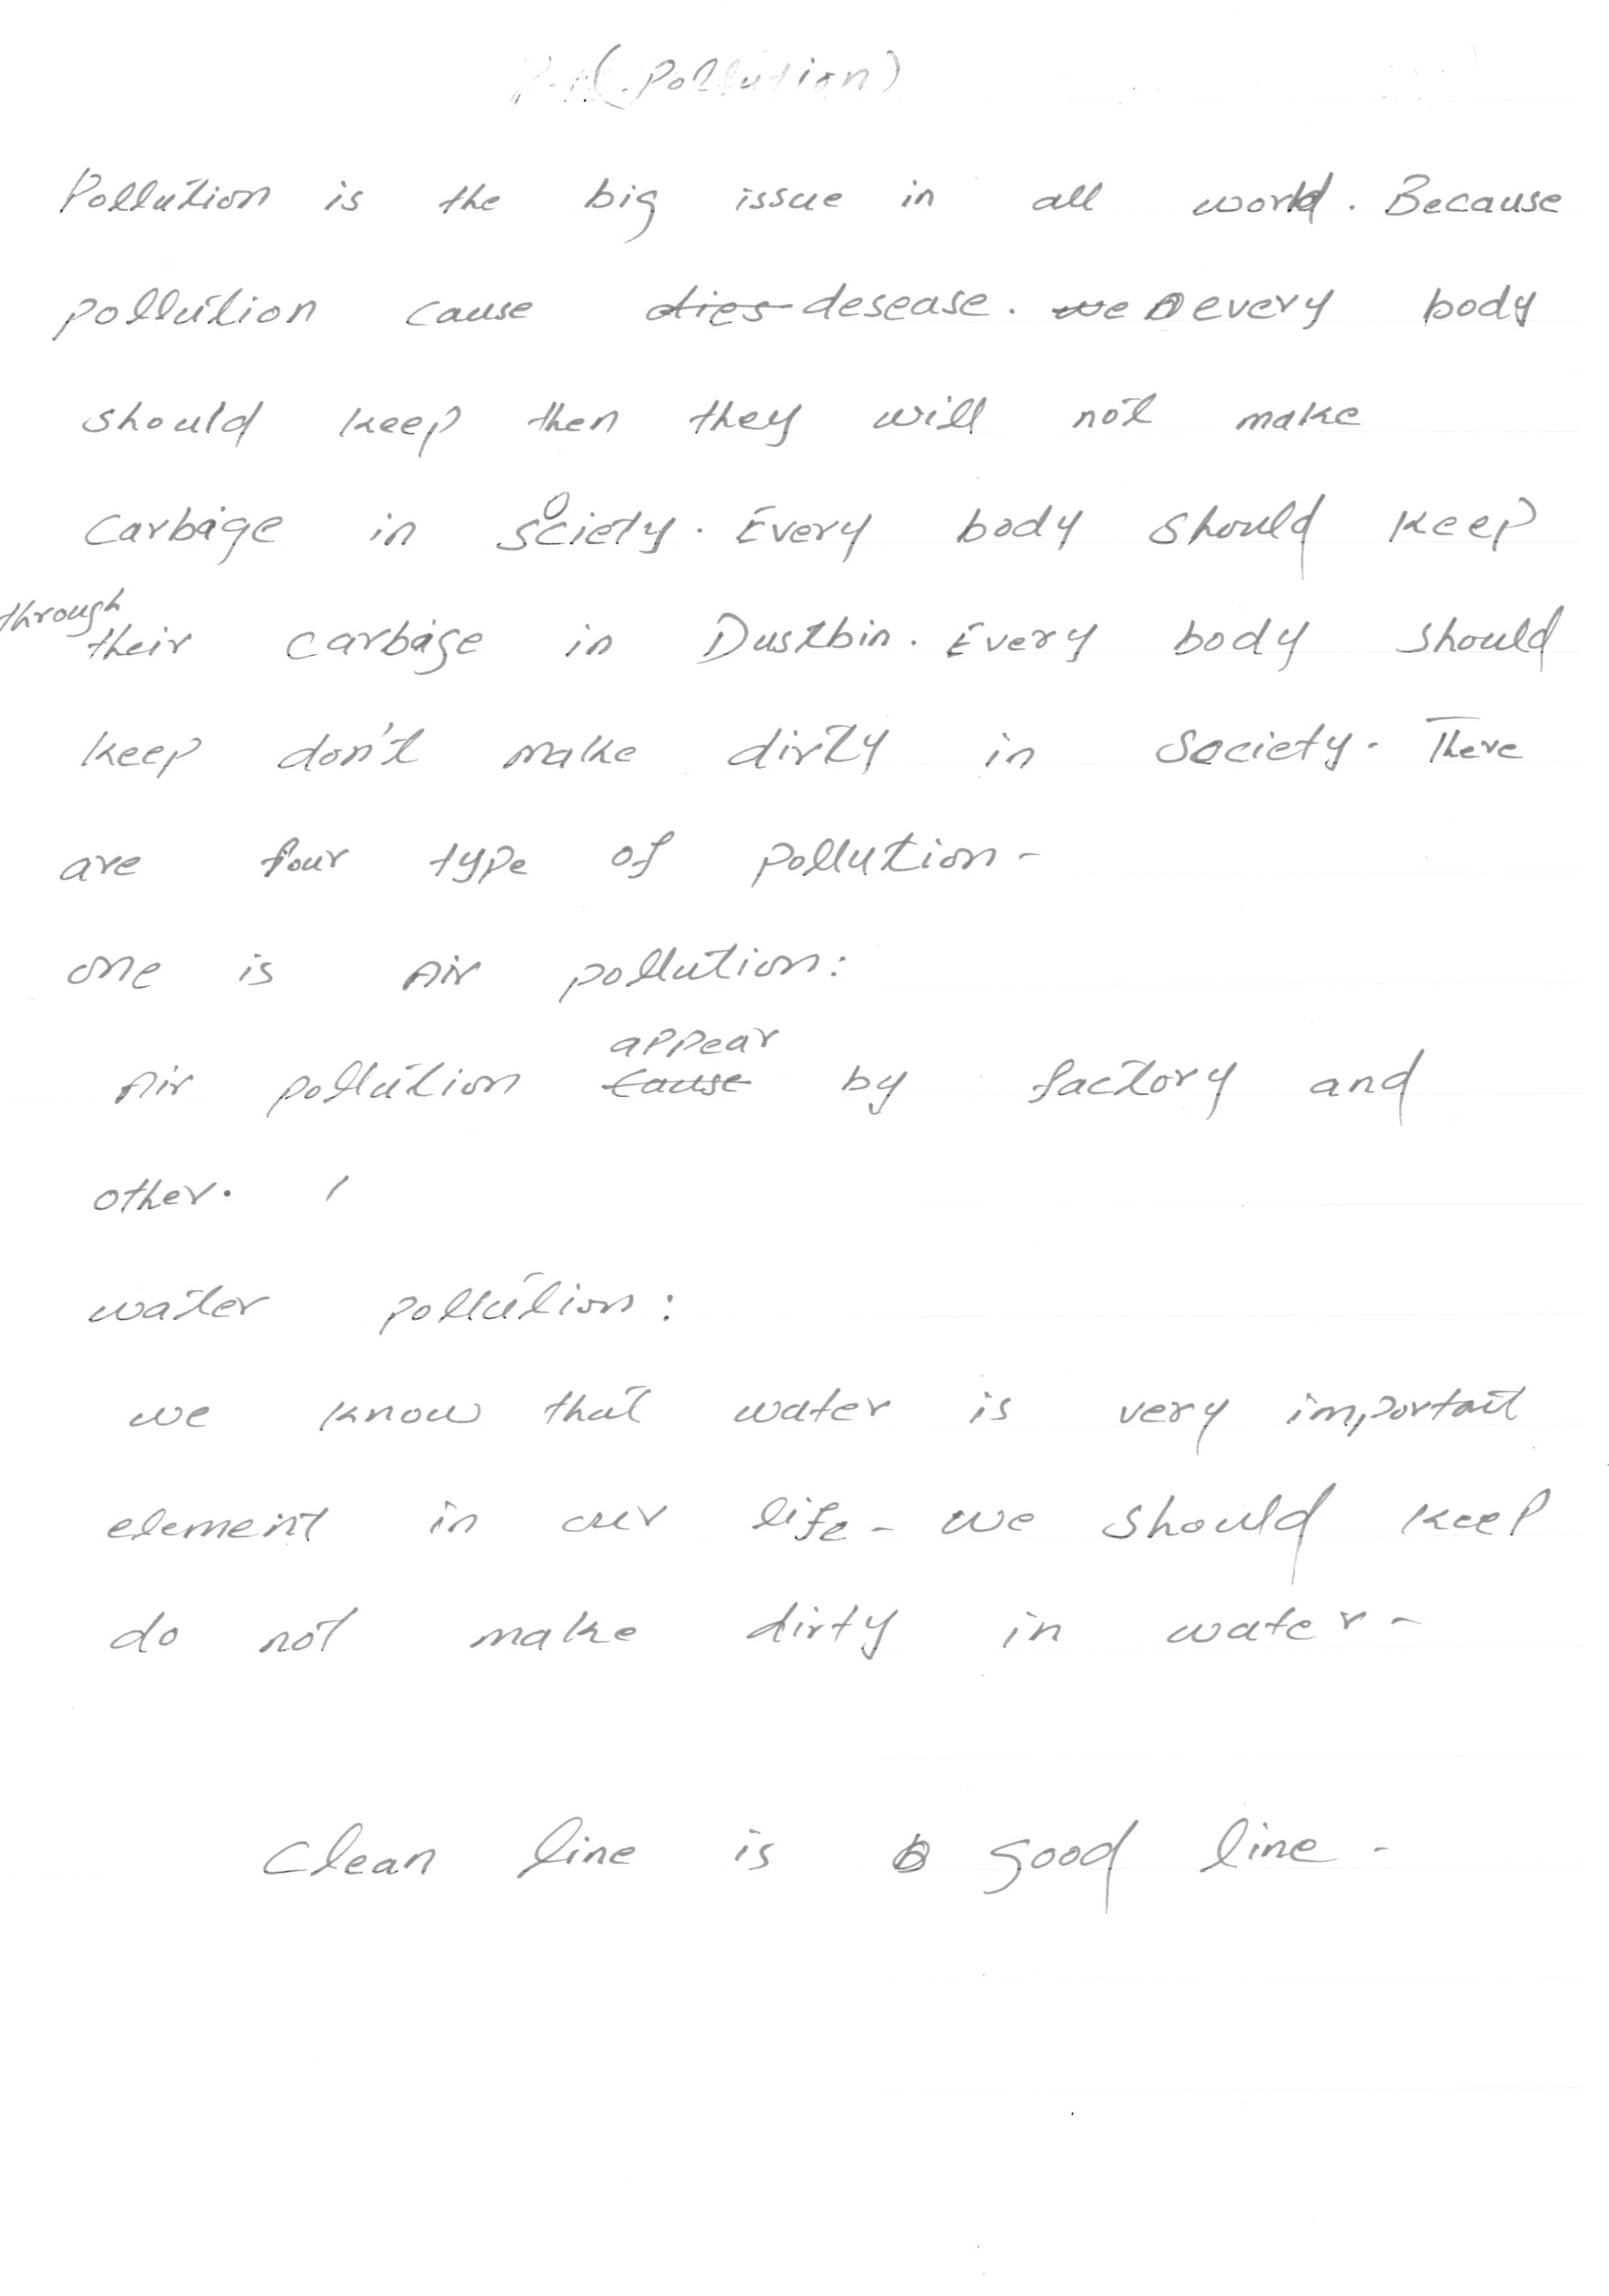 (Pollution)
Pollution is the big issue in all world. Because
pollution cause desease. every body
should keep then they will not make
carbage in society. Every body should keep
through
their carbage in Dustbin. Every body should
keep don't make dirty in society. There
are four type of pollution-
one is Air pollution:
appear
Air pollution cause by factory and
other.
water pollution:
we know that water is very importat
element in our life- we should keep
do not make dirty in water-
Clean line is good line-